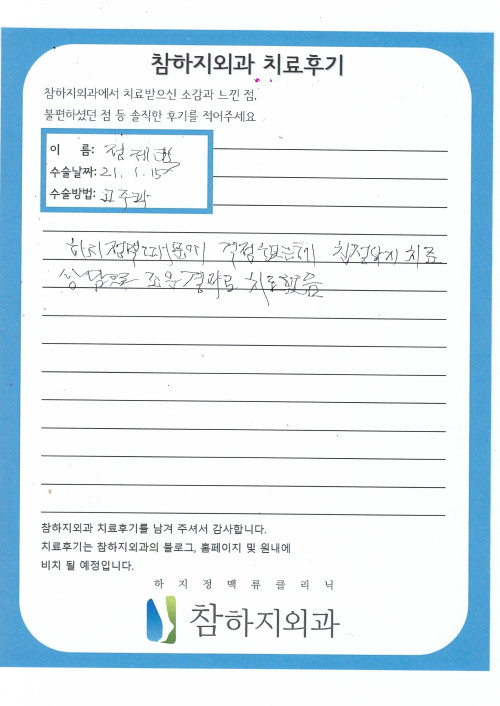 참하지외과 치료후기
참하지외과에서 치료받으신 소감과 느낀 점,
불편하셨던 점 등 솔직한 후기를 적어주세요
이 름: 정제
수술날짜: 21. 1. 15
수술방법: 고주파
하지정맥때문에 걱정했는데 친절하게 치료
상담으로 좋은 결과로 치료했음
참하지외과 치료후기를 남겨 주셔서 감사합니다.
치료후기는 참하지외과의 블로그, 홈페이지 및 원내에
비치 될 예정입니다.
하지정맥류클리닉
참하지외과